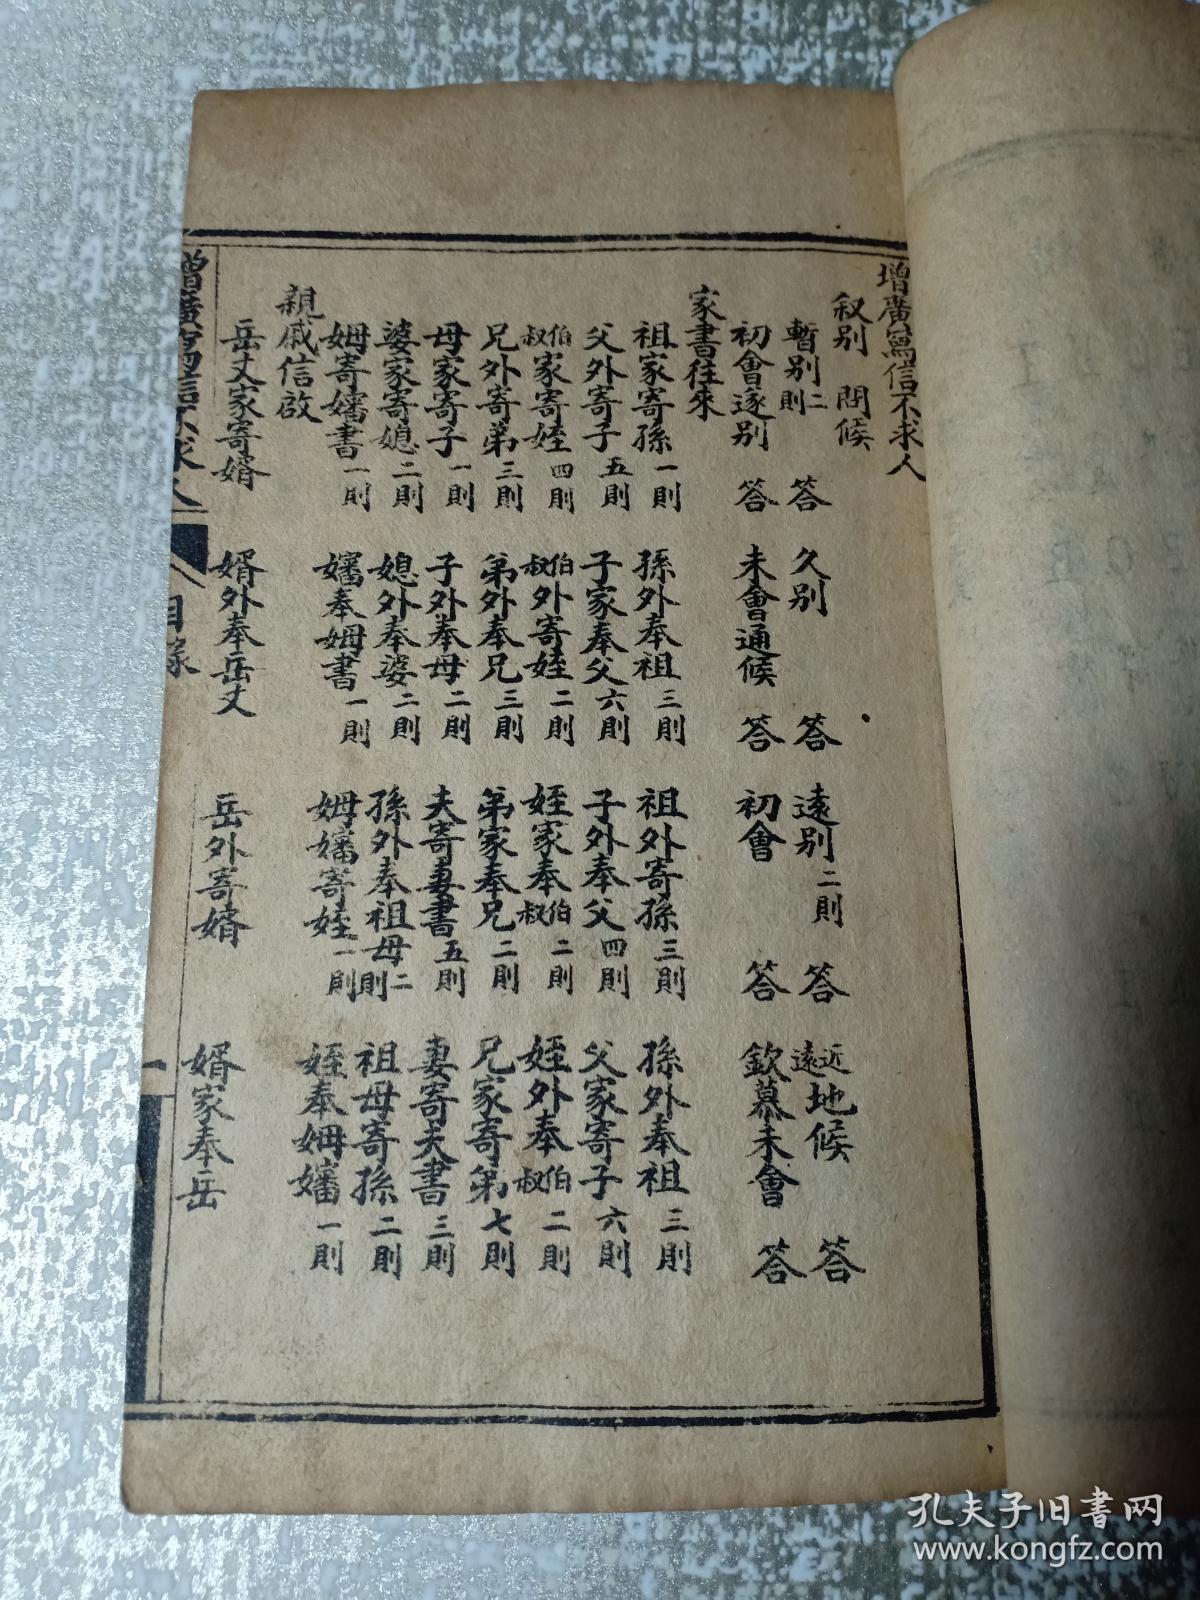 增廣寫信不求人
叙别　問候
暫别二則　答　久别　答　遠别二則　答　近遠地候　答
初會遂别　答　未會通候　答　初會　答　欽慕未會　答
家書往來
祖家寄孫一則　孫外奉祖三則　祖外寄孫三則　孫外奉祖三則
父外寄子五則　子家奉父六則　子外奉父四則　父家寄子六則
伯叔家寄姪四則　伯叔外寄姪二則　姪家奉伯叔二則　姪外奉伯叔二則
兄外寄弟三則　弟外奉兄三則　弟家奉兄二則　兄家寄弟七則
母家寄子一則　子外奉母二則　夫寄妻書五則　妻寄夫書三則
婆家寄媳二則　媳外奉婆二則　孫外奉祖母二則　祖母寄孫二則
姆寄嬸書一則　嬸奉姆書一則　姆嬸寄姪一則　姪奉姆嬸一則
親戚信啟
岳丈家寄婿　婿外奉岳丈　岳外寄婿　婿家奉岳
增廣寫信不求人　目錄　一
孔夫子旧书网
www.kongfz.com